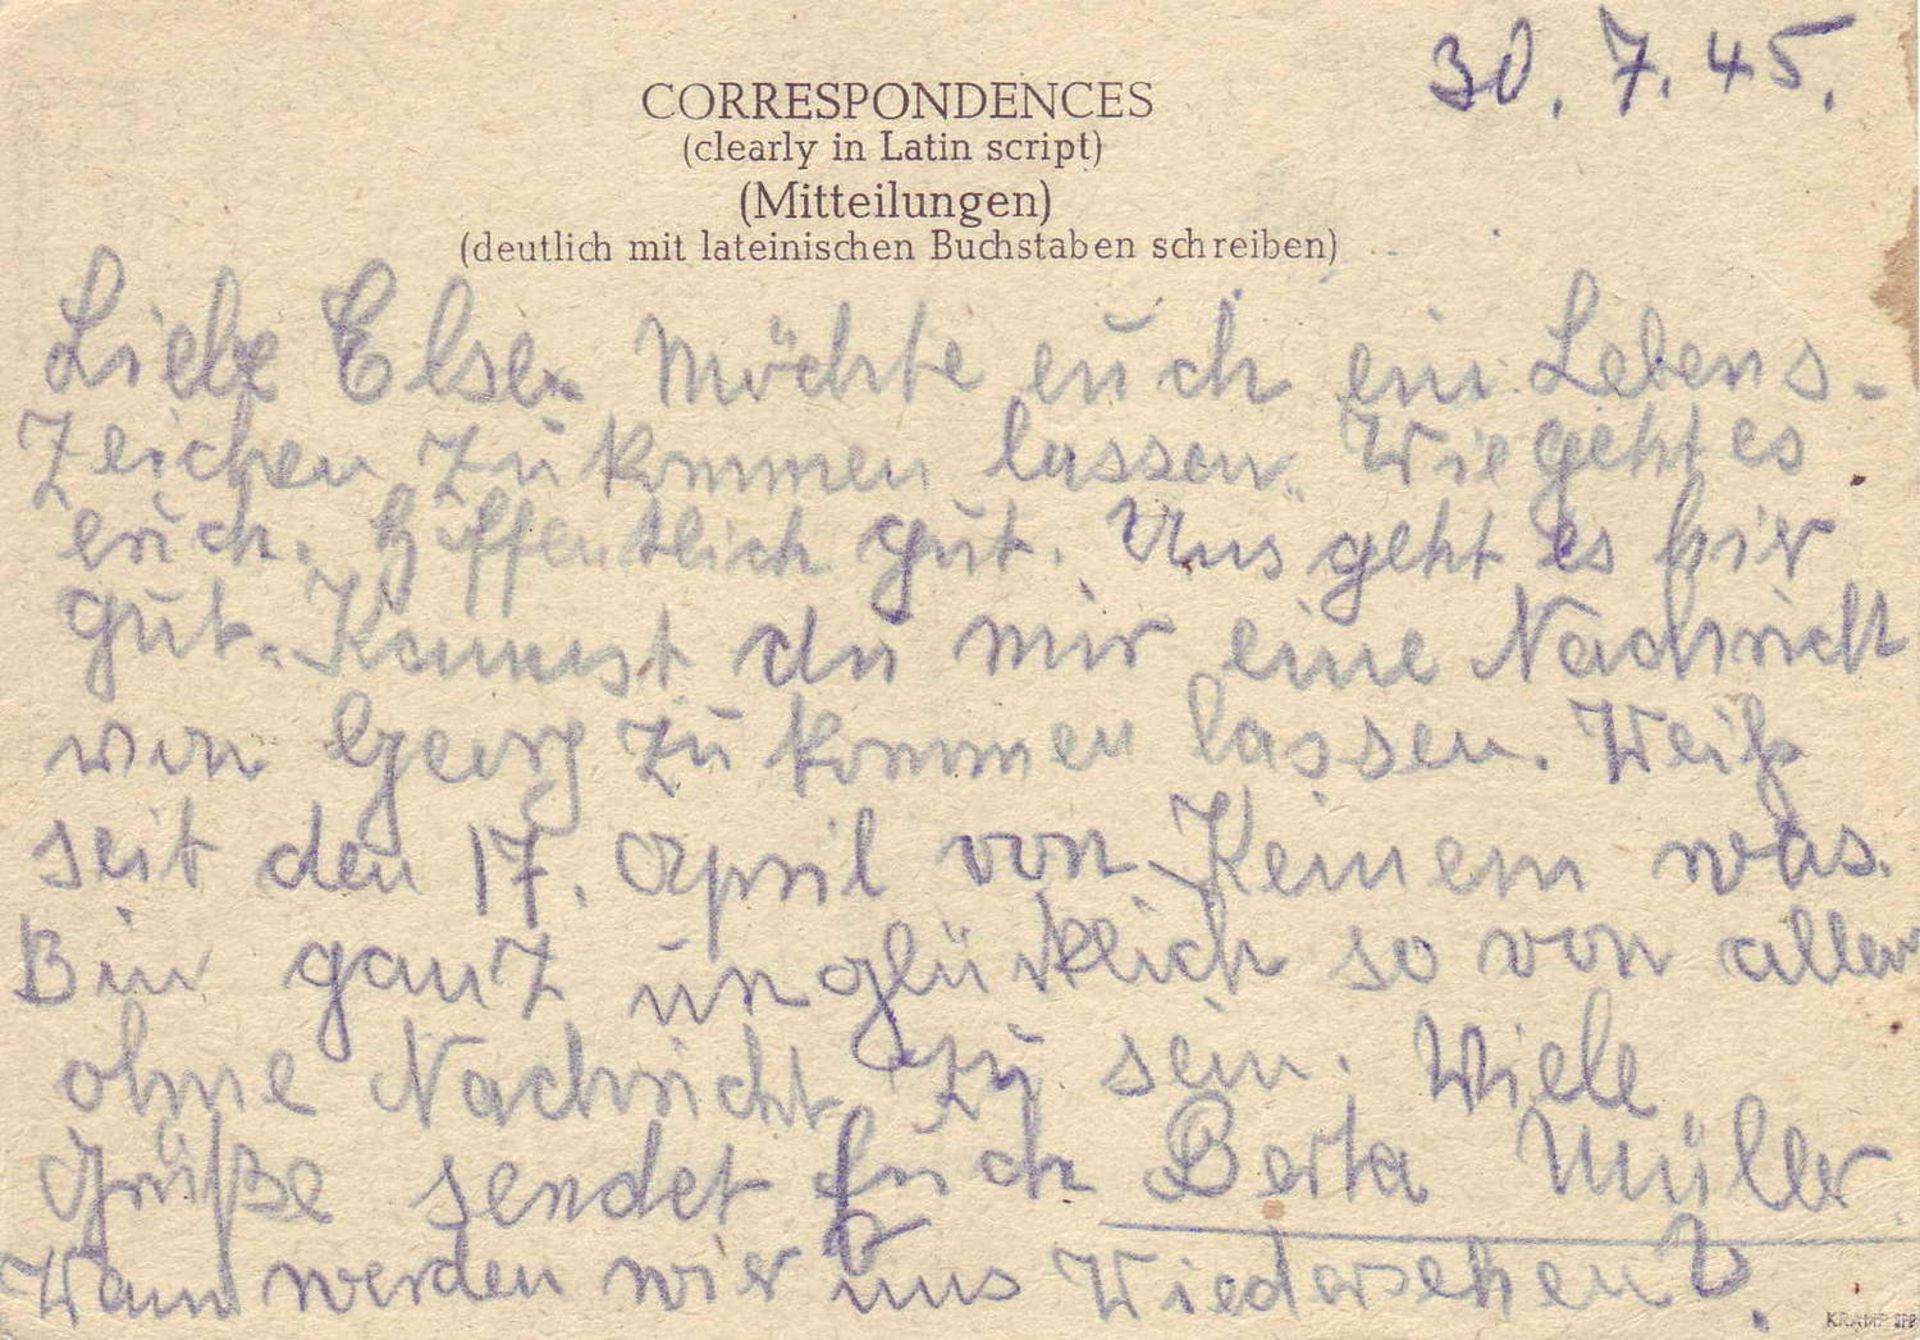 30. 7. 45.
CORRESPONDENCES
(clearly in Latin script)
(Mitteilungen)
(deutlich mit lateinischen Buchstaben schreiben)
Liebe Else. Möchte euch ein Lebens-
Zeichen zukommen lassen. Wie geht es
euch. Hoffentlich gut. Uns geht es hier
gut. Kannst du mir eine Nachricht
von Georg zukommen lassen. Weiß
seit den 17. April von Keinem was.
Bin ganz unglücklich so von allen
ohne Nachricht zu sein. Viele
Grüße sendet Euch Berta Müller
Wann werden wir uns Wiedersehen?
KRAMP